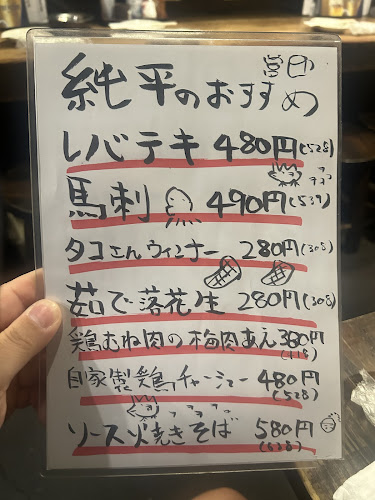 純平のおすすめ
レバテキ 480円(528)
馬刺 490円(539)
タコさんウィンナー 280円(308)
茹で落花生 280円(308)
鶏むね肉の梅肉あえ 380円(418)
自家製鶏チャーシュー 480円(528)
ソース焼きそば 580円(638)